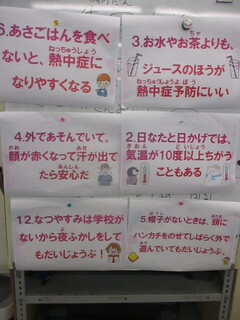 6.あさごはんを食べ
ないと、熱中症に
なりやすくなる
3.お水やお茶よりも、
ジュースのほうが
熱中症予防にいい
4.外であそんでいて、
顔が赤くなって汗が出て
たら安心だ
2.日なたと日かげでは、
気温が10度以上ちがう
こともある
12.なつやすみは学校が
ないから夜ふかしをして
もだいじょうぶ!
5.帽子がないときは、頭に
ハンカチをのせてしばらく外で
遊んでいてもだいじょうぶ。